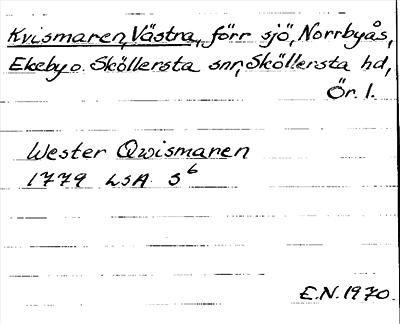 Kvismaren, Västra, förr sjö, Norrbyås,
Ekeby o. Sköllersta snr, Sköllersta hd,
Ör. l.
Wester Qwismaren
1779 LSA S⁶
E.N. 1970.